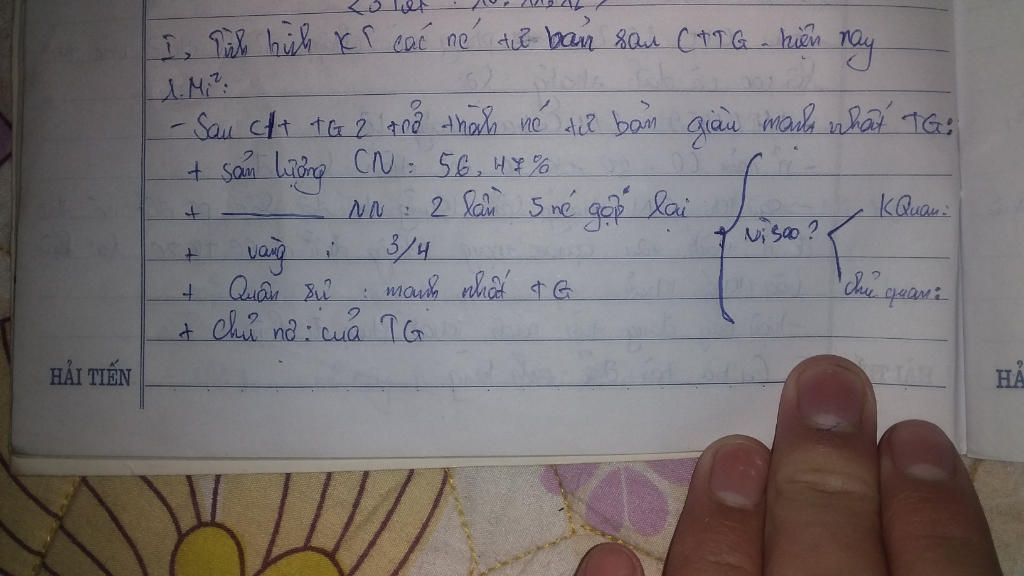 I, Tình hình KT các nc tư bản sau CTTG - hiện nay
1. Mĩ:
- Sau CTTG 2 trở thành nc tư bản giàu mạnh nhất TG:
+ sản lượng CN : 56,47%
+ ——— NN : 2 lần 5 nc gộp lại
+ vàng : 3/4
+ Quân sự : mạnh nhất TG
+ chủ nợ : của TG
Vì sao?
KQuan:
chủ quan:
HẢI TIẾN
HẢ